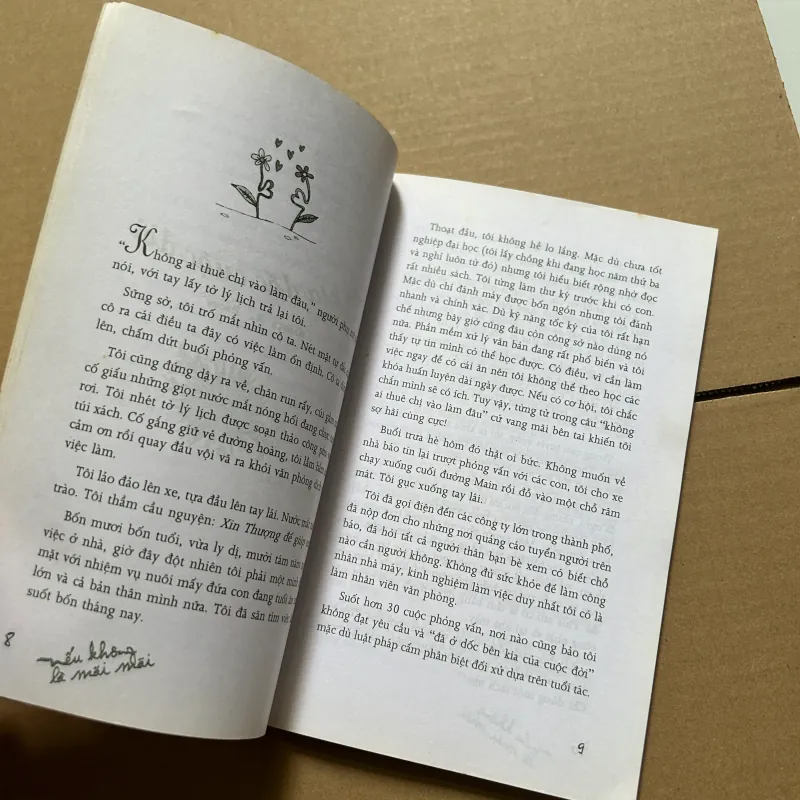 "Không ai thuê chị vào làm đâu," người phụ
nói, với tay lấy tờ lý lịch trả lại tôi.
Sững sờ, tôi trố mắt nhìn cô ta. Nét mặt tự đắc
cô ra cái điều ta đây có việc làm ổn định. Cô ta
lên, chấm dứt buổi phỏng vấn.
Tôi cũng đứng dậy ra về, chân run rẩy, cúi gằm
cố giấu những giọt nước mắt nóng hổi đang
rơi. Tôi nhét tờ lý lịch được soạn thảo công phu
túi xách. Cố gắng giữ vẻ đường hoàng, tôi lẩm bẩm
cảm ơn rồi quay đầu vội vã ra khỏi văn phòng
việc làm.
Tôi lảo đảo lên xe, tựa đầu lên tay lái. Nước mắt
trào. Tôi thầm cầu nguyện: Xin Thượng đế giúp
Bốn mươi bốn tuổi, vừa ly dị, mười tám năm
việc ở nhà, giờ đây đột nhiên tôi phải một mình
mặt với nhiệm vụ nuôi mấy đứa con đang tuổi ăn
lớn và cả bản thân mình nữa. Tôi đã săn tìm việc
suốt bốn tháng nay.
8
nếu không
là mãi mãi
Thoạt đầu, tôi không hề lo lắng. Mặc dù chưa tốt
nghiệp đại học (tôi lấy chồng khi đang học năm thứ ba
và nghỉ luôn từ đó) nhưng tôi hiểu biết rộng nhờ đọc
rất nhiều sách. Tôi từng làm thư ký trước khi có con.
Mặc dù chỉ đánh máy được bốn ngón nhưng tôi đánh
nhanh và chính xác. Dù kỹ năng tốc ký của tôi rất hạn
chế nhưng bây giờ cũng đâu còn công sở nào dùng nó
nữa. Phần mềm xử lý văn bản đang rất phổ biến và tôi
thấy tự tin mình có thể học được. Có điều, vì cần làm
việc ngay để có cái ăn nên tôi không thể theo học các
khóa huấn luyện dài ngày được. Nếu có cơ hội, tôi chắc
chắn mình sẽ có ích. Tuy vậy, từng từ trong câu "không
ai thuê chị vào làm đâu" cứ vang mãi bên tai khiến tôi
sợ hãi cùng cực!
Buổi trưa hè hôm đó thật oi bức. Không muốn về
nhà báo tin lại trượt phỏng vấn với các con, tôi cho xe
chạy xuống cuối đường Main rồi đỗ vào một chỗ râm
mát. Tôi gục xuống tay lái.
Tôi đã gọi điện đến các công ty lớn trong thành phố,
đã nộp đơn cho những nơi quảng cáo tuyển người trên
báo, đã hỏi tất cả người thân bạn bè xem có biết chỗ
nào cần người không. Không đủ sức khỏe để làm công
nhân nhà máy, kinh nghiệm làm việc duy nhất tôi có là
làm nhân viên văn phòng.
Suốt hơn 30 cuộc phỏng vấn, nơi nào cũng bảo tôi
không đạt yêu cầu và "đã ở dốc bên kia của cuộc đời"
mặc dù luật pháp cấm phân biệt đối xử dựa trên tuổi tác.
9